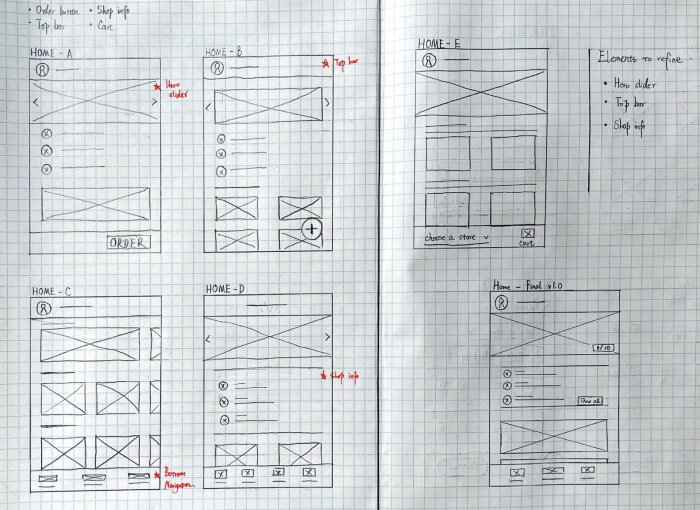 • Order button • Shop info
• Top bar • Cart
HOME - A
Hero
slider
ORDER
HOME - B
Top bar
HOME - C
Bottom
Navigation
HOME - D
Shop info
HOME - E
choose a store v
Cart
Elements to refine
• Hero slider
• Top bar
• Shop info
Home - Final v1.0
Show all